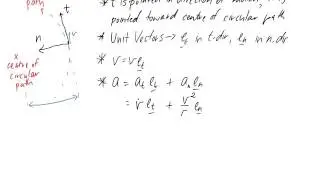 path
* t is pointed in direction of motion,
pointed toward centre of circular path
t
* Unit Vectors → e_t in t-dir, e_n in n-dir
n
v
* v = v e_t
x
centre of
circular
path
* a = a_t e_t + a_n e_n
= v̇ e_t + v²/r e_n